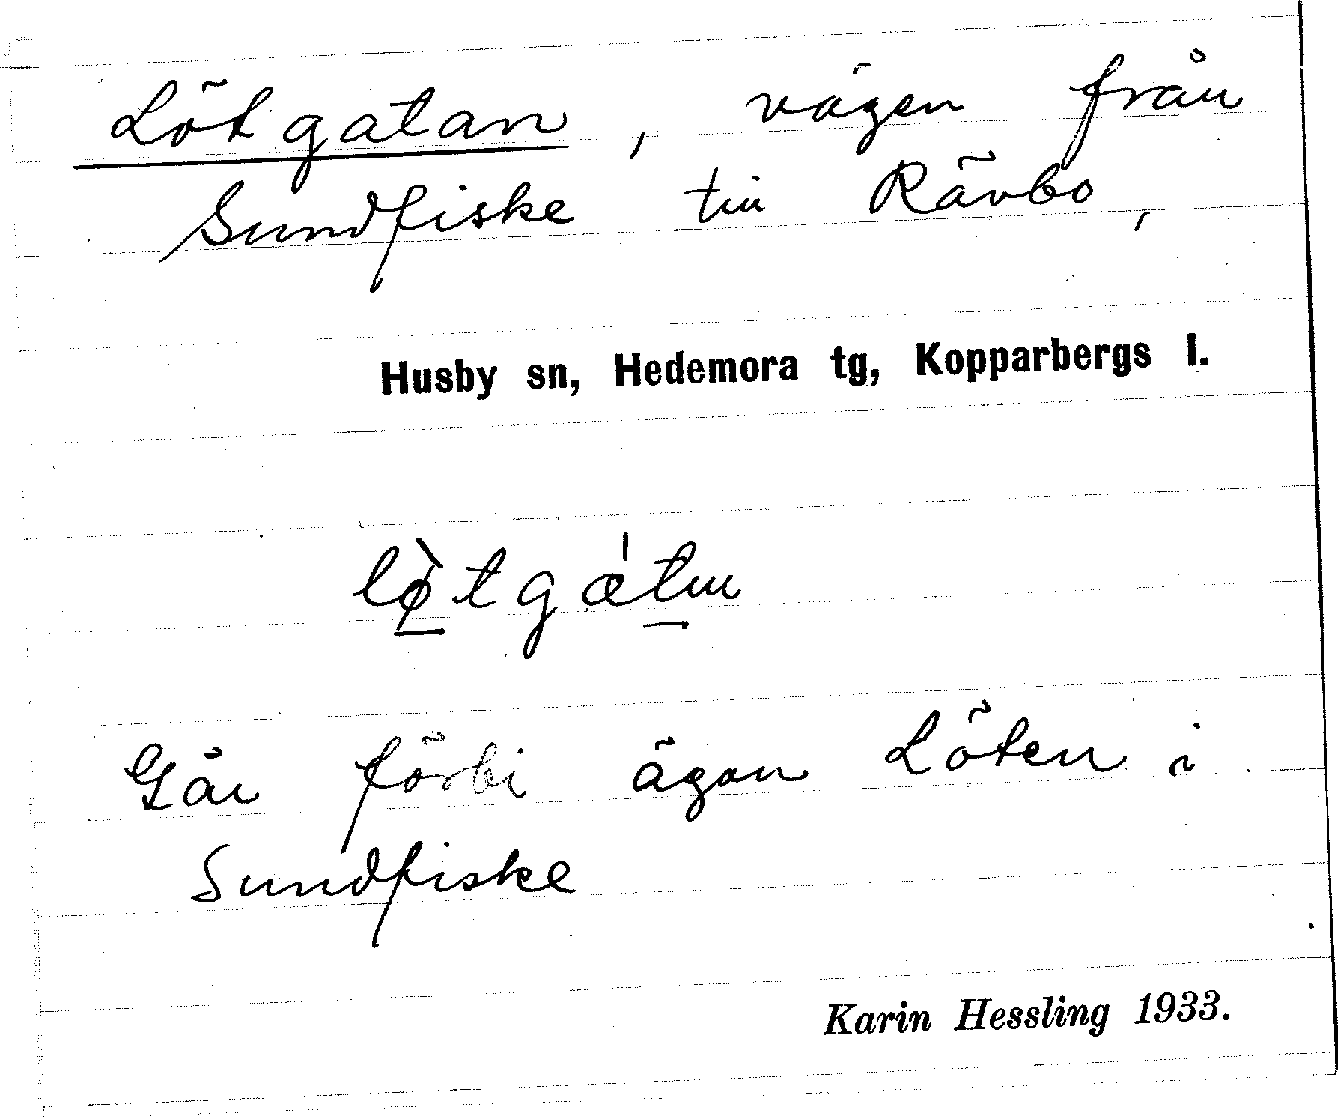 Lötgatan, vägen från
Sundfiske till Rävbo,
Husby sn, Hedemora tg, Kopparbergs l.
lø̀tgátn
Går förbi ägan Löten i
Sundfiske
Karin Hessling 1933.